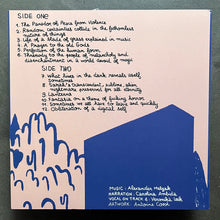 SIDE ONE
1. The Paradox of Peace from Violence
2. Random certainties collide in the fathomless
nature of things
3. Life of a blade of grass explained in music
4. A Prayer to the Old Gods
5. Perfection of the human form
6. Threnody to the people of melancholy and
disenchantment in a world devoid of magic
SIDE TWO
7. What lives in the dark reveals itself,
sometimes
8. Sarad's transcendent, sublime, akin
nightmare preserved for all eternity
9. Lantern
10. Fantasia on a theme of fucking horror
11. Sometimes we all have to leave, and quickly
12. Obliteration of a digital self
MUSIC: Alexander
NARRATION: Carolina
VOCAL ON TRACK 6: Veronika
ARTWORK: Antoine